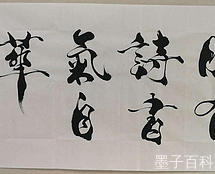 詩書
氣自
華
墨子百科